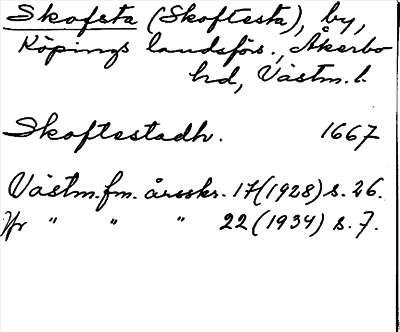 Skofsta (Skoftesta), by,
Köpings landsförs., Åkerbo
hd, Västm. l.
Skoftestadh. 1667
Västm. fm. årsskr. 17 (1928) s. 26.
Jfr " " " 22 (1934) s. 7.